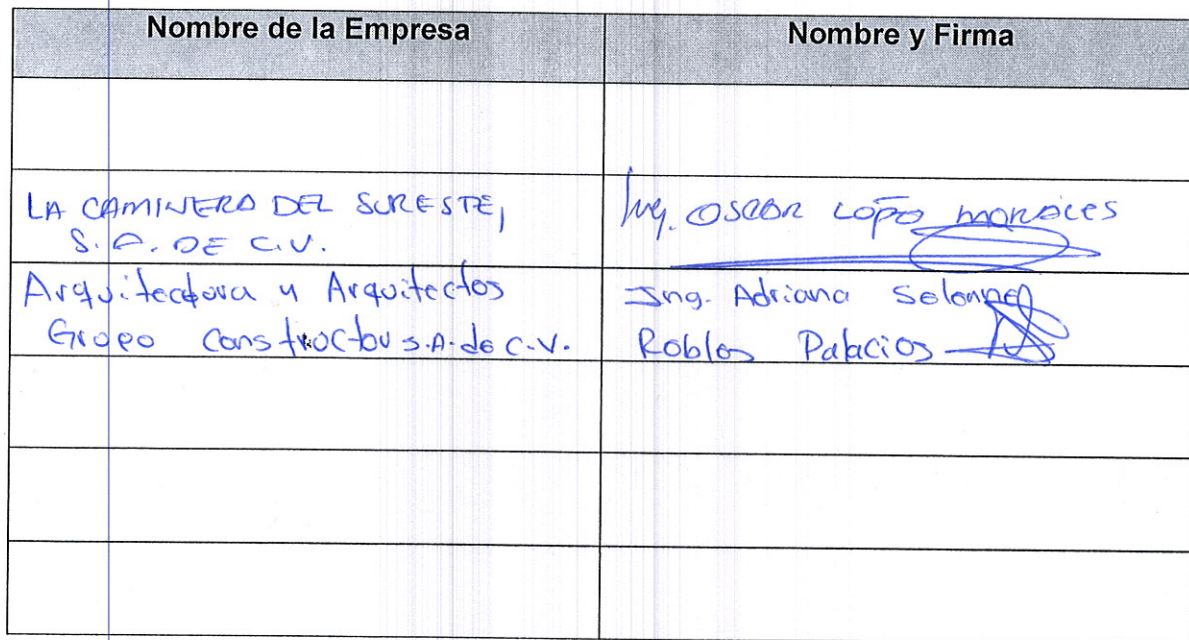 Nombre de la Empresa
Nombre y Firma
LA CAMINERA DEL SURESTE,
S.A. DE C.V.
Ing. OSCAR
Arquitectura y Arquitectos
Grupo Constructor S.A. de C.V.
Ing. Adriana
Robles Palacios